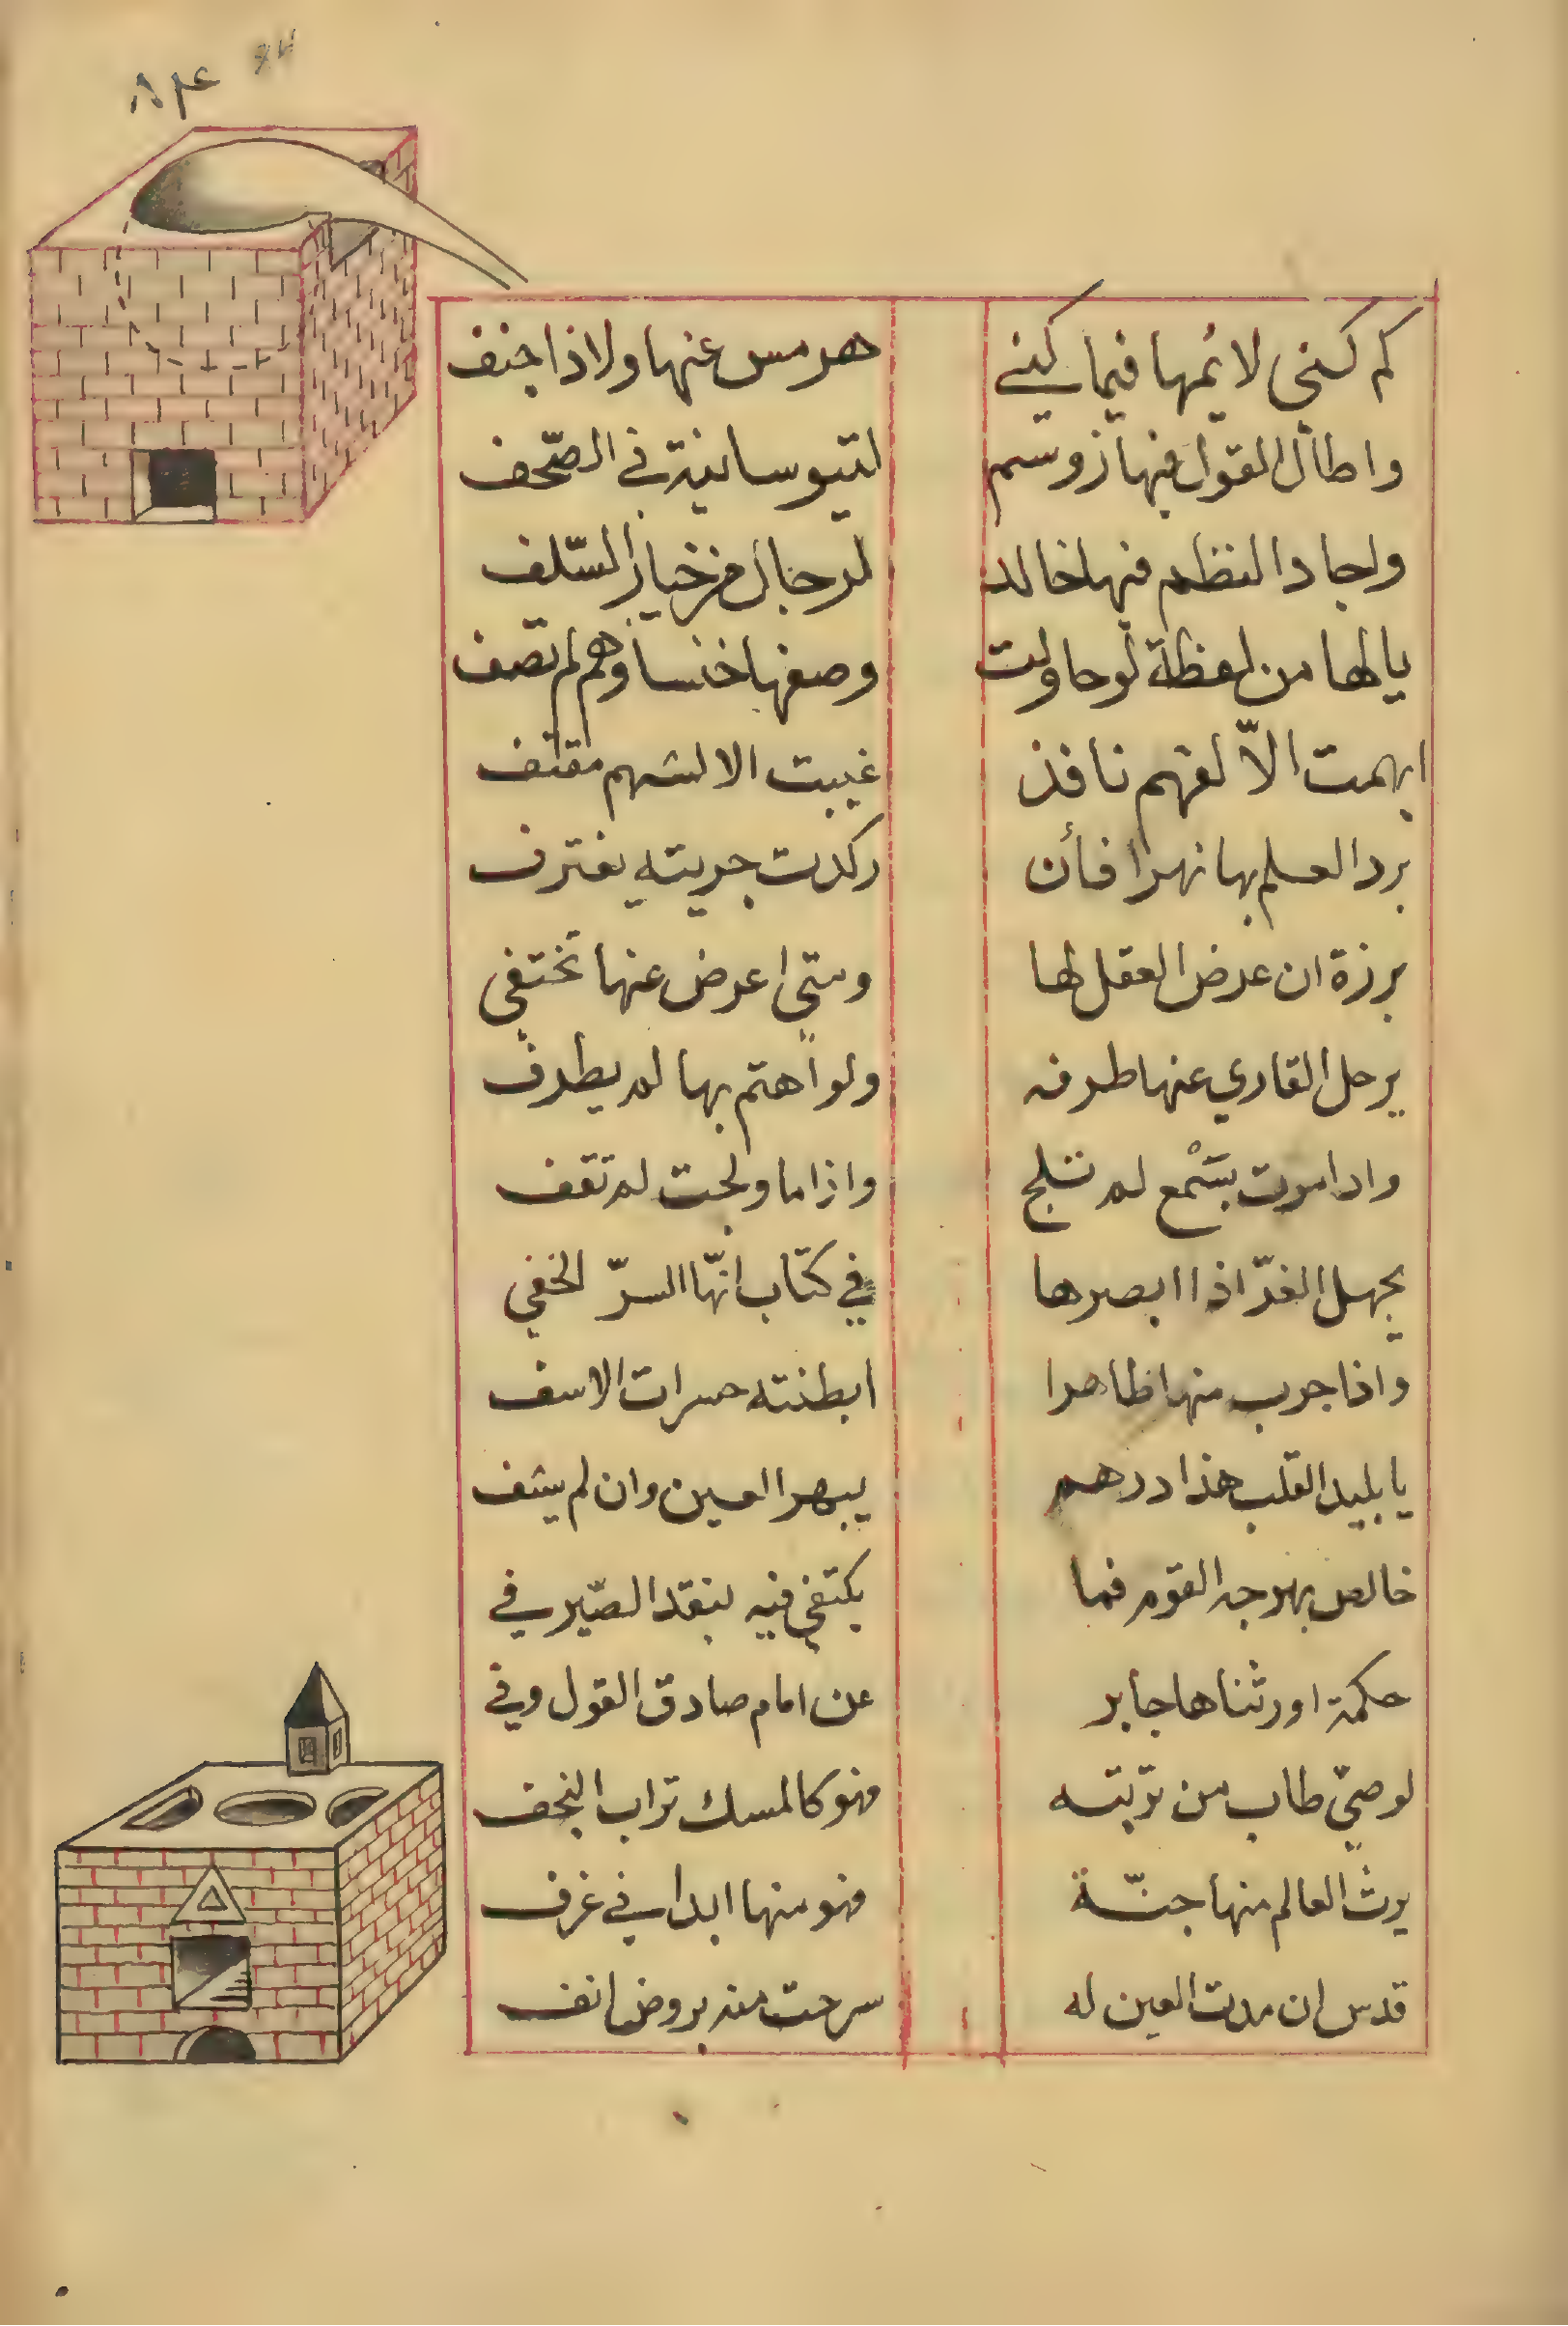 ٨٣٤ ٨٧
كم كنى لائمها فيما كنى هرمس عنها ولاذا جنف
واطال القول فيها زوسم لتيوسانية في الصحف
واجاد النظم فيها خالد لرجال من خيار السّلف
يالها من لفظة لو حاولت وصفها خنساؤهم لم تصف
ابهمت الاّ لفهم نافذ غيبت الا لشهم مقتف
برد العلم بها نهرا فأن ركدت جريته يغترف
برزة ان عرض العقل لها ومتى اعرض عنها تختفي
يرحل القاري عنها طرفه ولو اهتم بها لم يطرف
واذا مرت بسَمْع لم تلج واذا ما ولجت لم تقف
يجهل الغرّ اذا ابصرها في كتاب انّها السرّ الخفي
واذا جرب منها ظاهرا ابطنته حسرات الاسف
يا بليد القلب هذا درهم يبهر العين وان لم يشف
خالص بهرجه القوم فما يكتفى فيه بنقد الصّيرفي
حكمة اورثناها جابر عن امام صادق القول وفي
لوصيّ طاب من تربته فهو كالمسك تراب النجف
يرث العالم منها جنّة فهو منها ابدا في غرف
قدس ان مدت العين له سرحت منه بروض انف